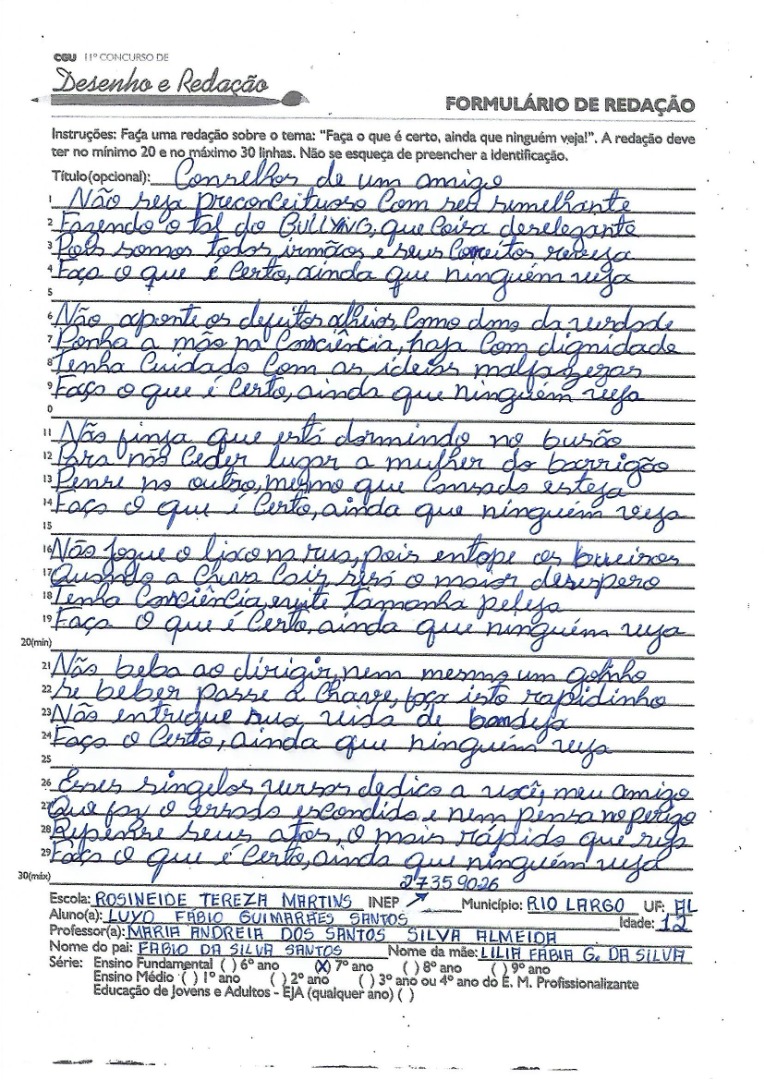 CGU 11º CONCURSO DE
Desenho e Redação
FORMULÁRIO DE REDAÇÃO
Instruções: Faça uma redação sobre o tema: "Faça o que é certo, ainda que ninguém veja!". A redação deve
ter no mínimo 20 e no máximo 30 linhas. Não se esqueça de preencher a identificação.
Título(opcional): Conselhos de um amigo
1 Não seja preconceituoso Com seu semelhante
2 Fazendo o tal do BULLYING, que Coisa deselegante
3 Pois somos todos irmãos e seus Conceitos reveja
4 Faça o que é Certo, ainda que ninguém veja
5
6 Não aponte os defeitos alheios, Como dono da verdade
7 Ponha a mão na Consciência, haja Com dignidade
8 Tenha Cuidado Com as ideias malfazejas
9 Faça o que é Certo, ainda que ninguém veja
0
11 Não finja que está dormindo no busão
12 Para não Ceder lugar a mulher do barrigão
13 Pense no outro, mesmo que Cansado esteja
14 Faça O que é Certo, ainda que ninguém veja
15
16 Não jogue o lixo na rua, pois entope os bueiros
17 Quando a Chuva Cair será o maior desespero
18 Tenha Consciência, evite tamanha peleja
19 Faça O que é Certo, ainda que ninguém veja
20(mín)
21 Não beba ao dirigir, nem mesmo um golinho
22 se beber passe a Chave, faça isto rapidinho
23 Não entregue sua vida de bandeja
24 Faça o Certo, ainda que ninguém veja
25
26 Esses singelos versos dedico a você, meu amigo
27 Que faz o errado escondido e nem pensa no perigo
28 Repense seus atos, o mais rápido que seja
29 Faça o que é Certo, ainda que ninguém veja
30(máx)
27359026
Escola: ROSINEIDE TEREZA MARTINS INEP Município: RIO LARGO UF: AL
Aluno(a): LUYD FÁBIO GUIMARÃES SANTOS Idade: 12
Professor(a): MARIA ANDREIA DOS SANTOS SILVA ALMEIDA
Nome do pai: FABIO DA SILVA SANTOS Nome da mãe: LILIA FABIA G. DA SILVA
Série: Ensino Fundamental ( ) 6º ano (X) 7º ano ( ) 8º ano ( ) 9º ano
Ensino Médio ( ) 1º ano ( ) 2º ano ( ) 3º ano ou 4º ano do E. M. Profissionalizante
Educação de Jovens e Adultos - EJA (qualquer ano) ( )